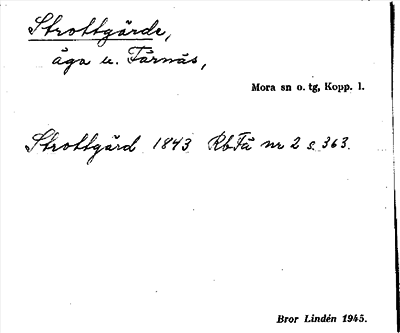 Strottgärde,
äga u. Färnäs,
Mora sn o. tg, Kopp. l.
Strottgärd 1843 RbFä nr 2 s. 363.
Bror Lindén 1945.